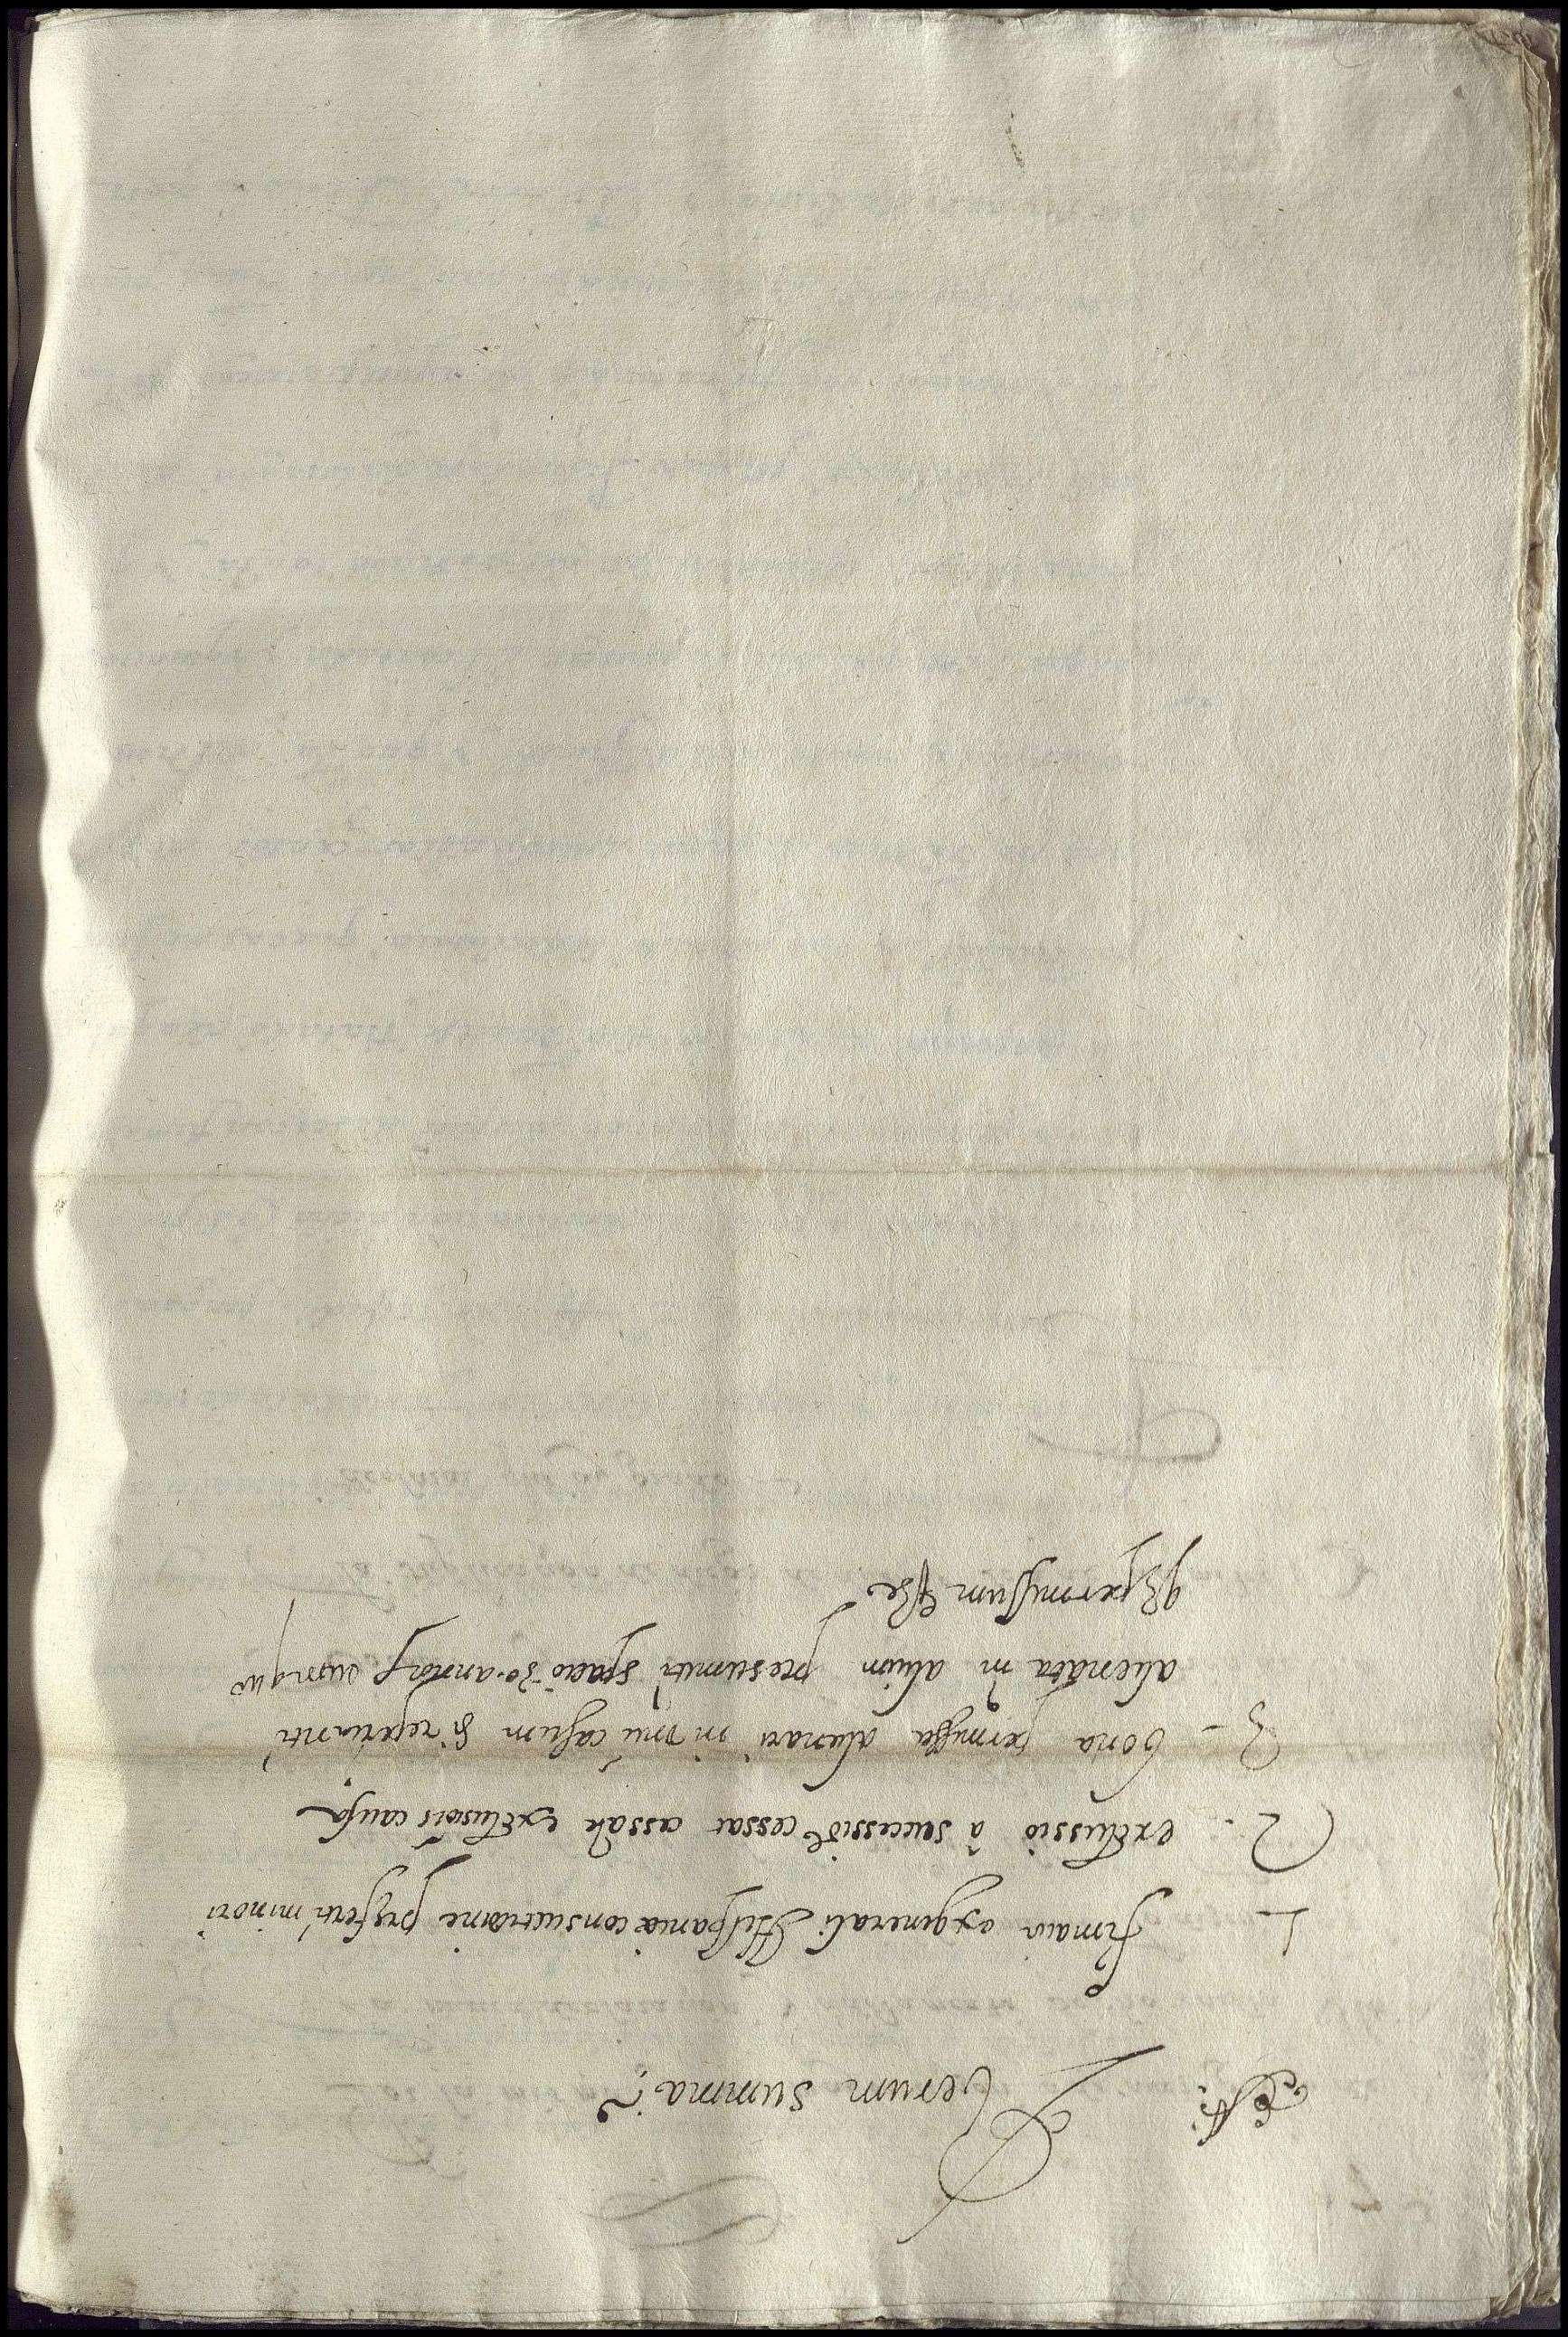 Rerum summa
1 firmam ex generali Hispaniæ consuetudine præfertr minori
2. exclussio à successiōe cessat cessāte exclusiōis causa
3 – bona permissa alienari in vnū casum si reperiantr
alienata in alium presumitr spacio 30. annorȝ
qȝ permissum esse